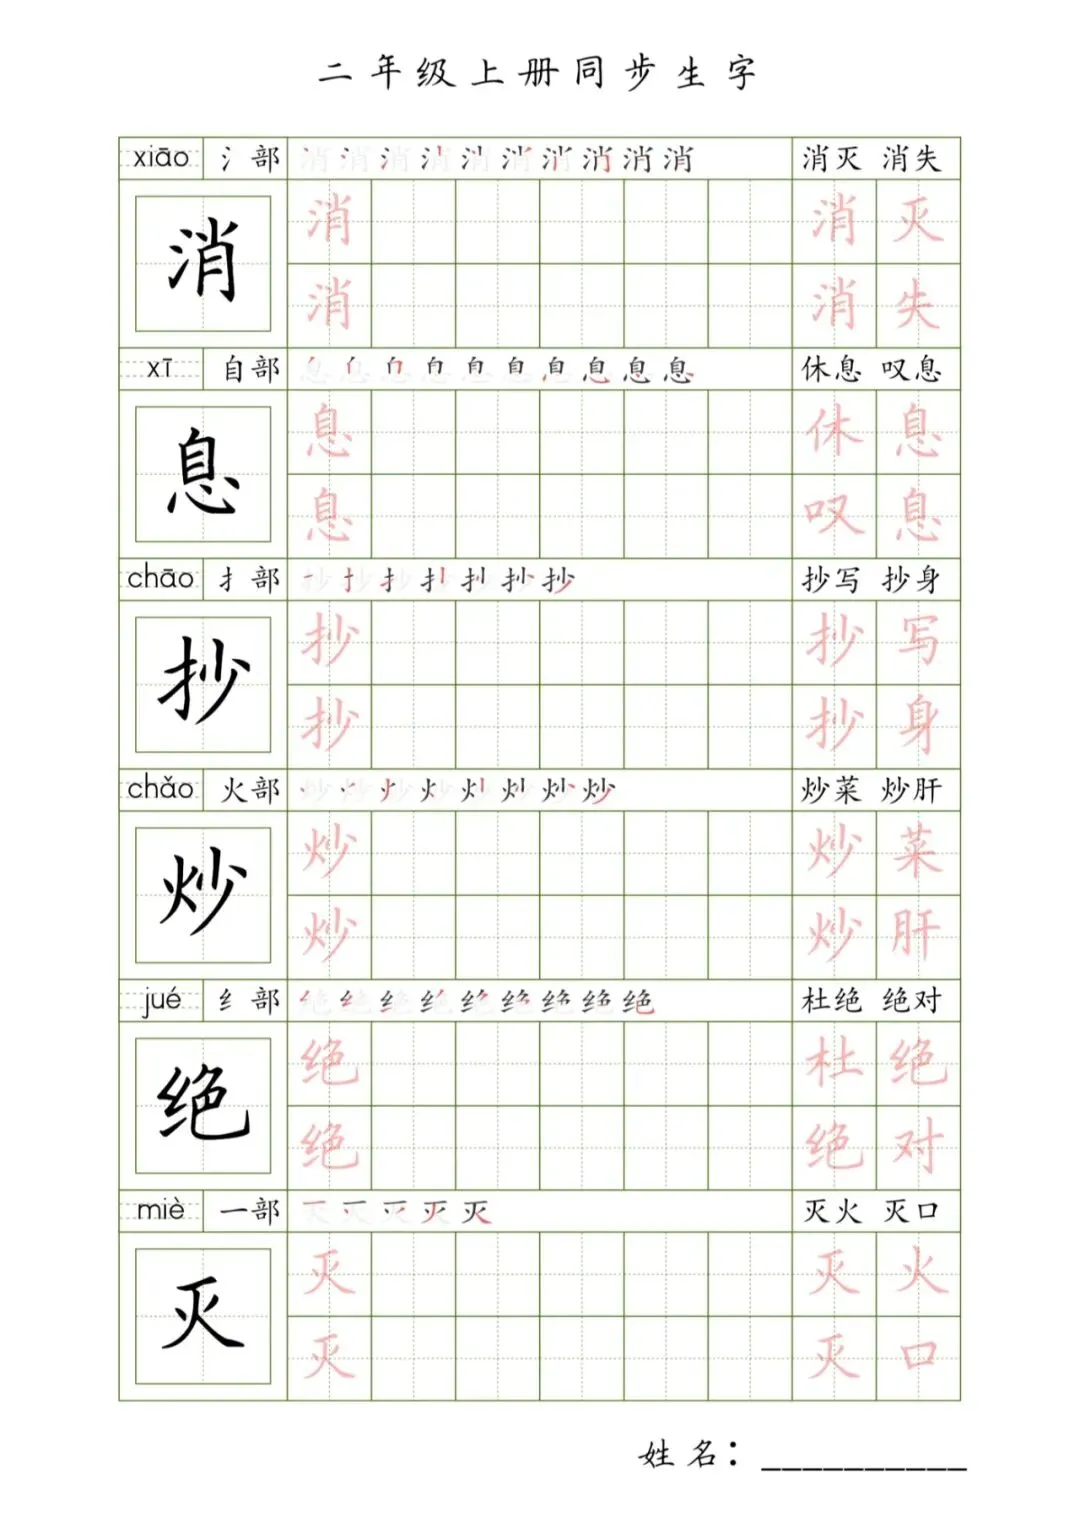 二年级上册同步生字
xiāo 氵部 消消消消消消消消消消 消灭 消失
消 消 消灭
消 消失
xī 自部 息息息息息息息息息息 休息 叹息
息 息 休息
息 叹息
chāo 扌部 抄抄抄抄抄抄抄 抄写 抄身
抄 抄 抄写
抄 抄身
chǎo 火部 炒炒炒炒炒炒炒炒 炒菜 炒肝
炒 炒 炒菜
炒 炒肝
jué 纟部 绝绝绝绝绝绝绝绝绝 杜绝 绝对
绝 绝 杜绝
绝 绝对
miè 一部 灭灭灭灭灭 灭火 灭口
灭 灭 灭火
灭 灭口
姓名：__________